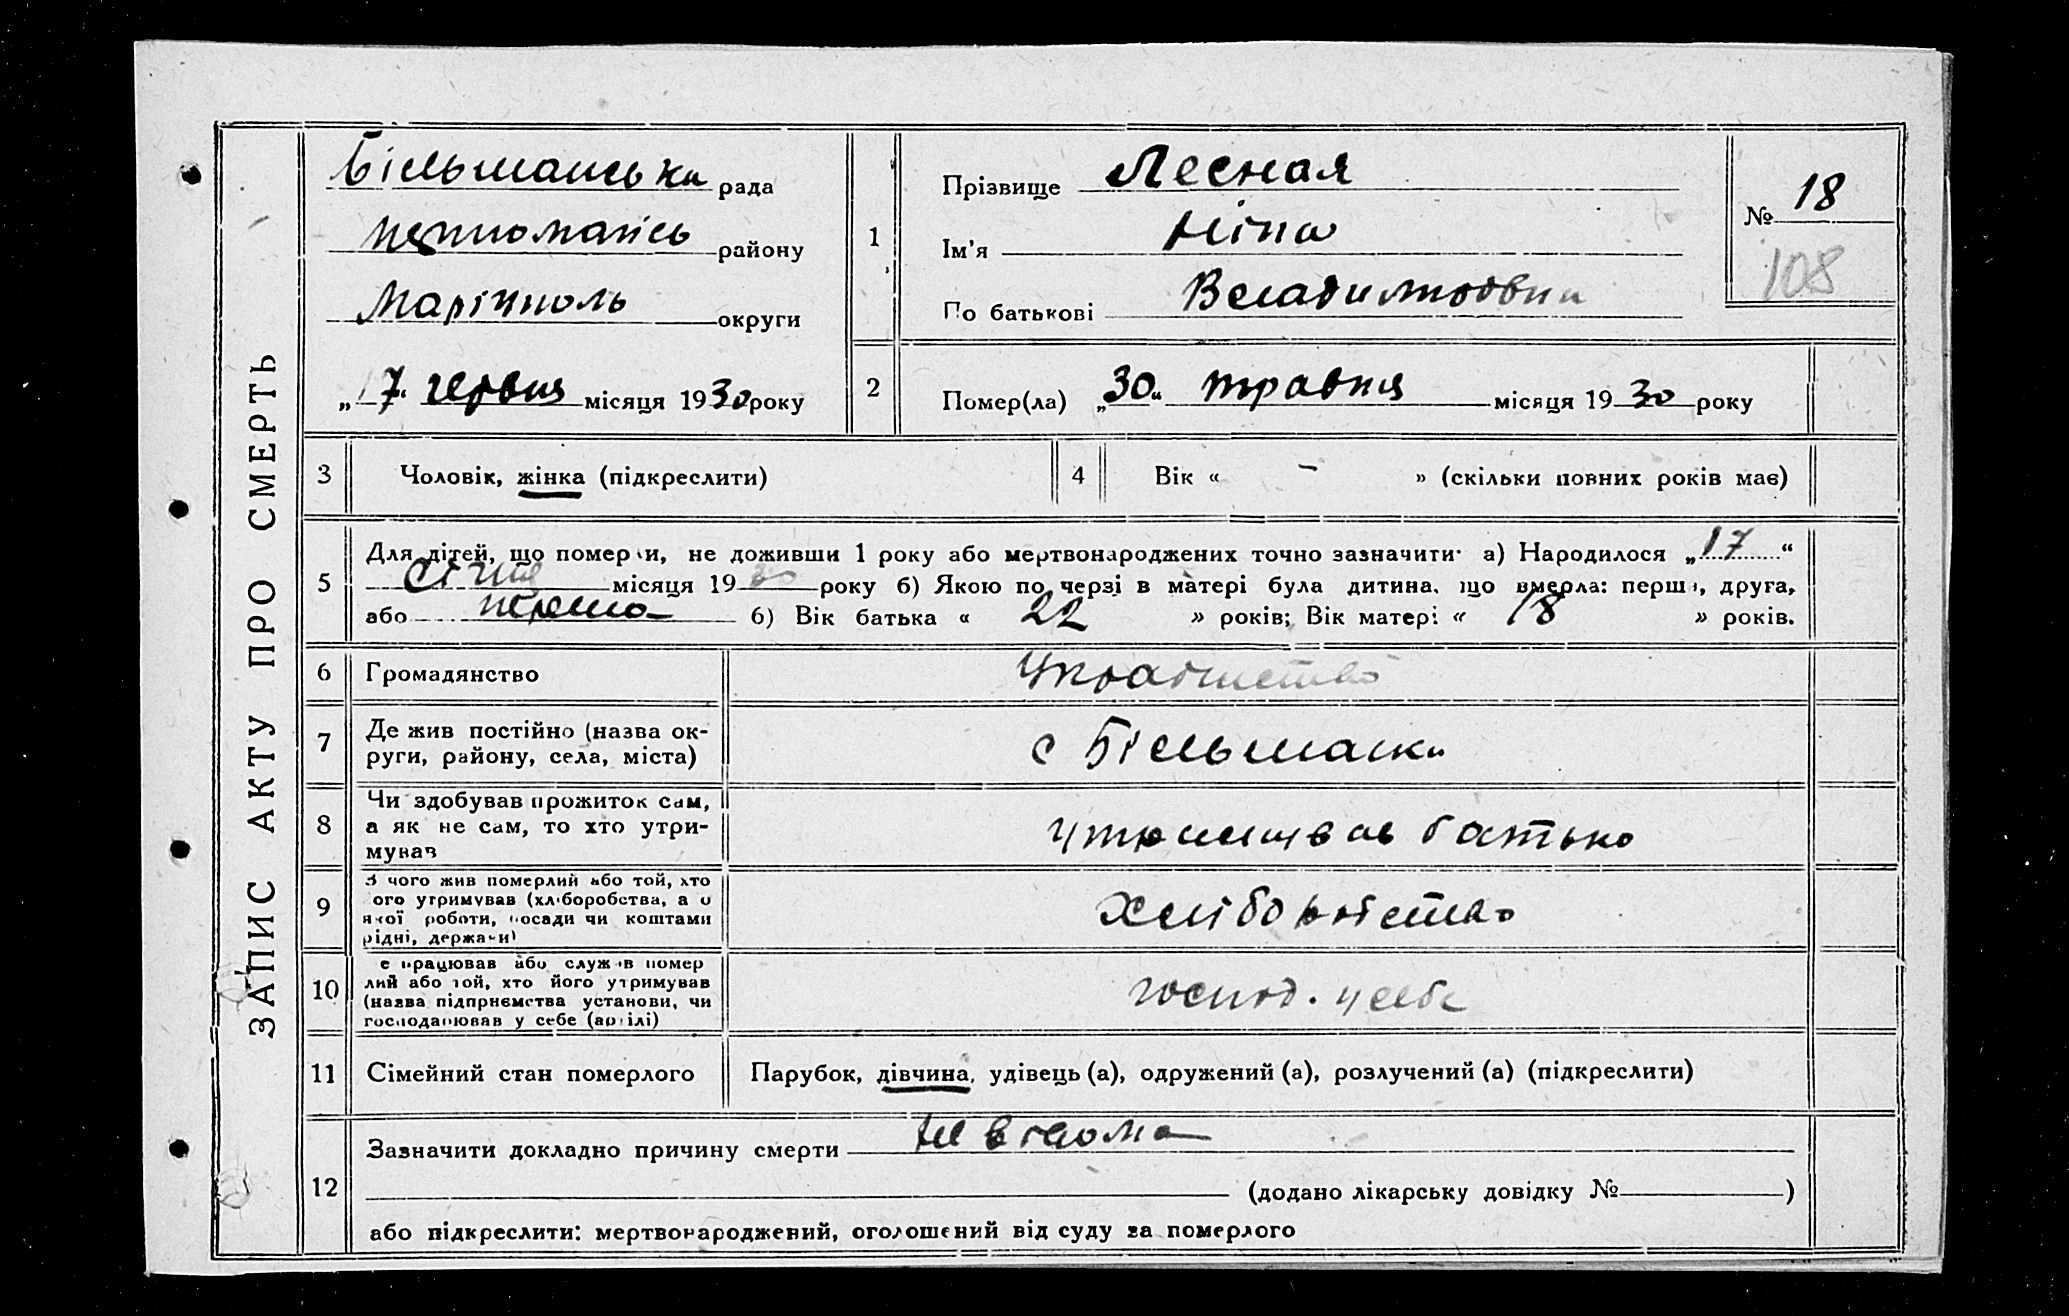 ЗАПИС АКТУ ПРО СМЕРТЬ
Більманська рада
району
Маріупполь округи
„ 7 “ червня місяця 1930 року
1
Прізвище Лесная
Ім'я Ніна
По батькові Владимировни
№ 18
108
2
Помер(ла) „30“ травня місяця 1930 року
3 Чоловік, жінка (підкреслити)
4 Вік « – » (скільки повних років має)
5 Для дітей, що померли, не доживши 1 року або мертвонароджених точно зазначити· а) Народилося „17“
січня місяця 1930 року б) Якою по черзі в матері була дитина, що вмерла: перша, друга,
або перша б) Вік батька « 22 » років; Вік матері « 18 » років.
6 Громадянство
7 Де жив постійно (назва ок-
руги, району, села, міста) с Більманки
8 Чи здобував прожиток сам,
а як не сам, то хто утри-
мував батько
9 З чого жив померлий або той, хто
ого утримував (хліборобства, а о
якої роботи, посади чи коштами
рідні, держави) Хліборобство
10 е працював або служив помер
лий або той, хто його утримував
(назва підприємства установи, чи
господарював у себе (артілі) господ. у себе
11 Сімейний стан померлого Парубок, дівчина, удівець (а), одружений (а), розлучений (а) (підкреслити)
12 Зазначити докладно причину смерти Невідома
(додано лікарську довідку № )
або підкреслити: мертвонароджений, оголошений від суду за померлого